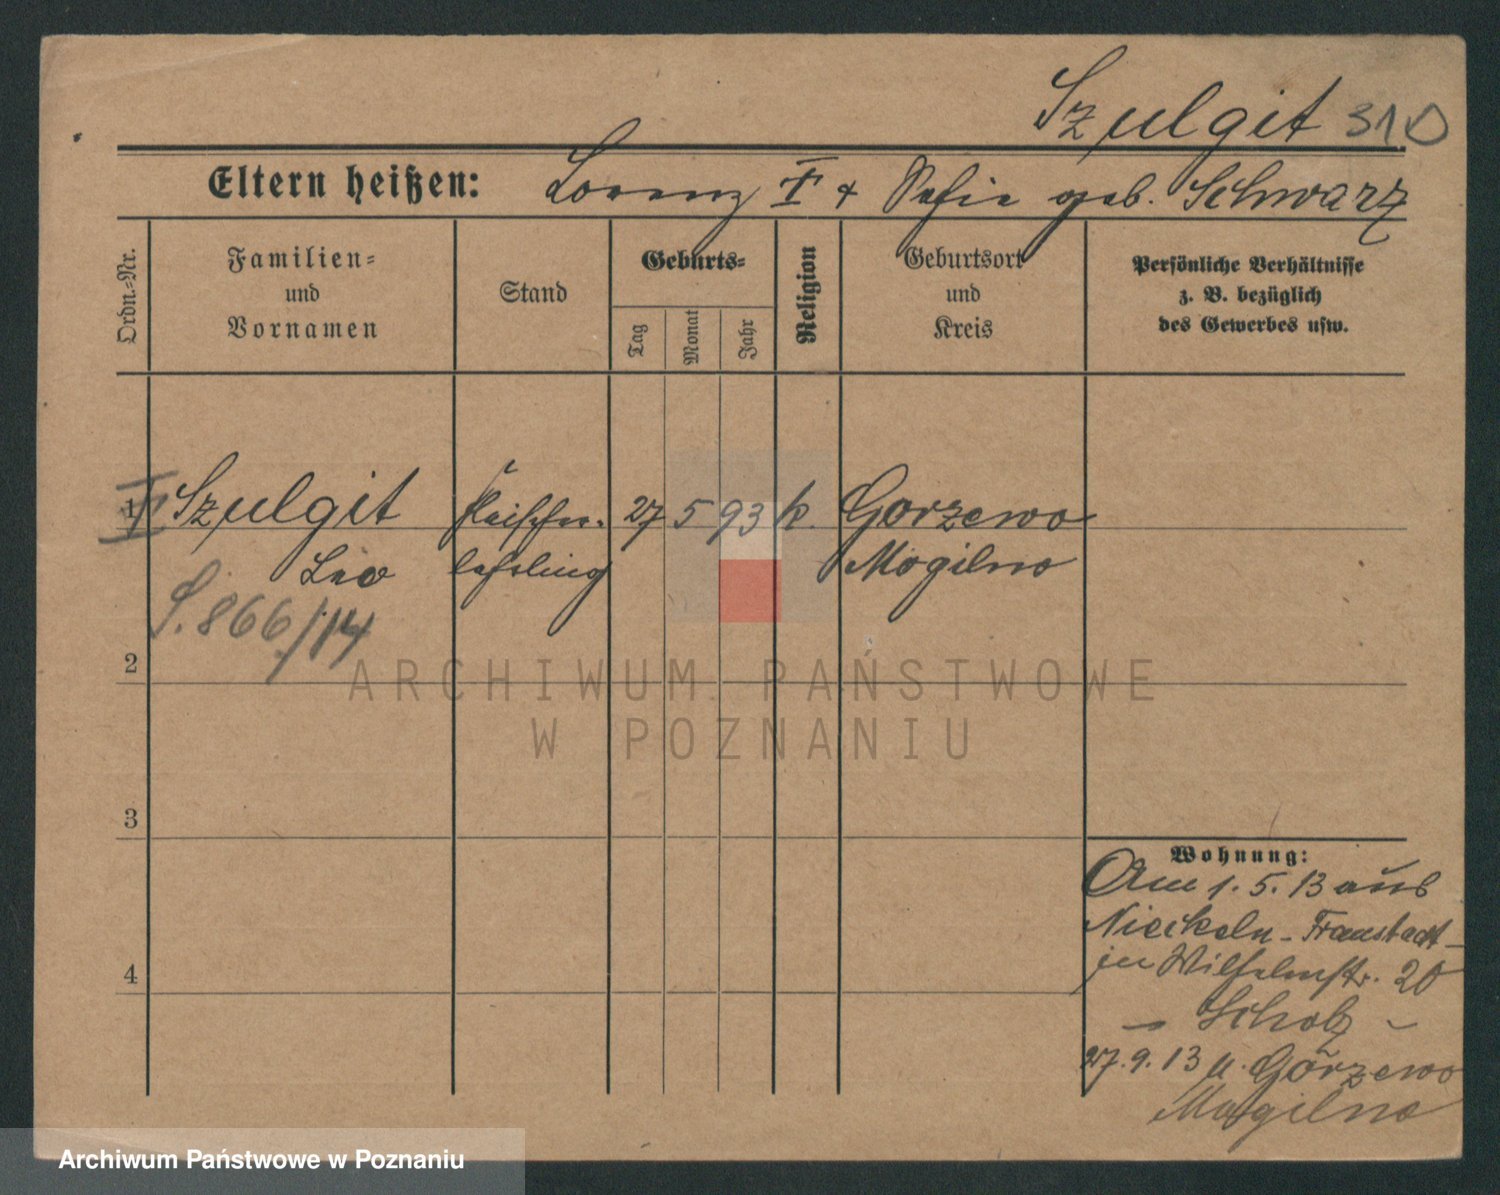 Szulgit 310
Eltern heißen: Lorenz † + Sofie geb. Schwarz
Ordn.-Nr.
Familien-
und
Vornamen
Stand
Geburts-
Tag
Monat
Jahr
Religion
Geburtsort
und
Kreis
Persönliche Verhältnisse
z. B. bezüglich
des Gewerbes usw.
1 Szulgit Fleischer- 27 5 93 k. Gorzewo
Leo lehrling Mogilno
S. 866/14
2
ARCHIWUM PAŃSTWOWE
W POZNANIU
3
Wohnung:
Am 1. 5. 13 aus
Nieckeln - Fraustadt -
in Wilhelmstr. 20
- Scholz -
4
27. 9. 13 n. Gorzewo
Mogilno
Archiwum Państwowe w Poznaniu